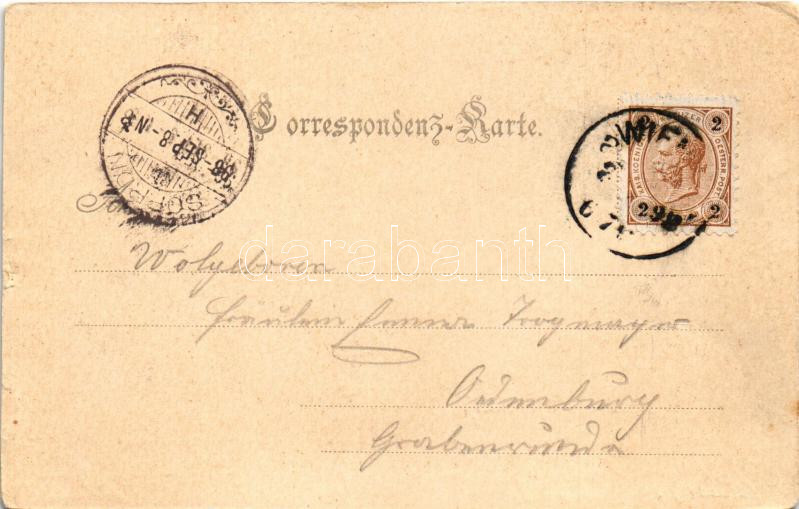 Correspondenz-Karte.
SOPRON
98 SEP 8
WIEN
2 2
KAIS. KOENIGL. OESTERR. POST
2 2
Wolgeboren
Fräulein Emma Trogmayer
Ödenburg
Grabenrunde
darabanth.com